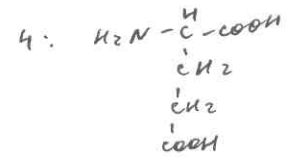 H
4: H2N - C - COOH
CH2
CH2
COOH